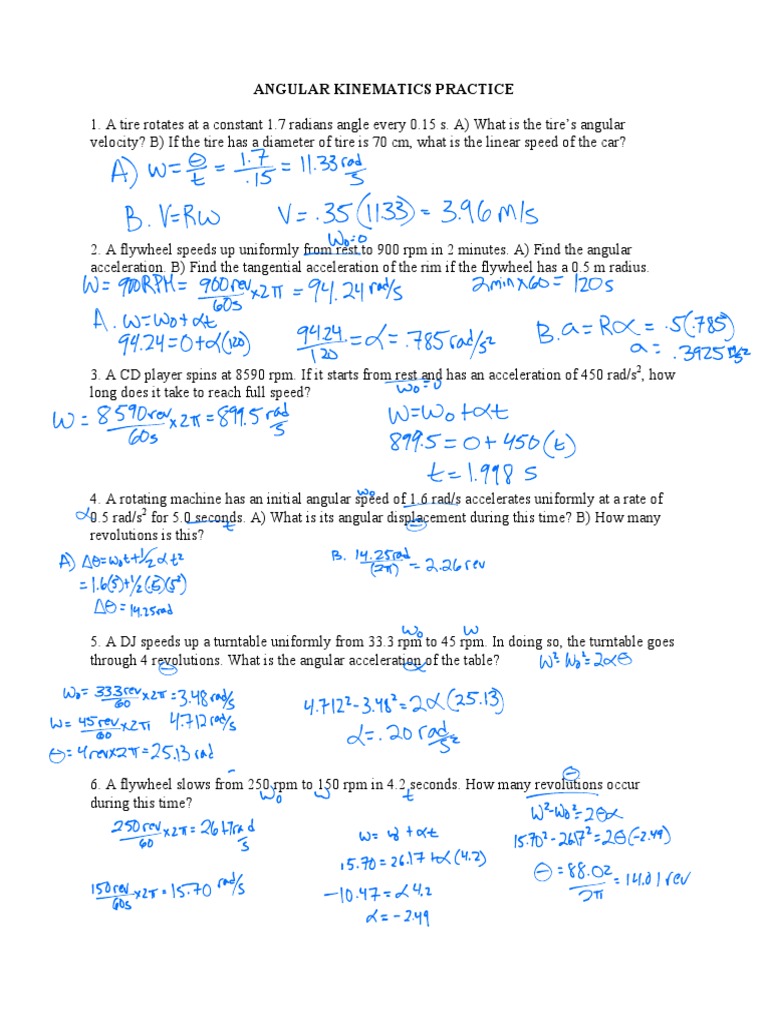 ANGULAR KINEMATICS PRACTICE
1. A tire rotates at a constant 1.7 radians angle every 0.15 s. A) What is the tire's angular
velocity? B) If the tire has a diameter of tire is 70 cm, what is the linear speed of the car?
A) ω = θ/t = 1.7/.15 = 11.33 rad/s
B. V=Rω V = .35(1133) = 3.96 M/s
ω₀=0
2. A flywheel speeds up uniformly from rest to 900 rpm in 2 minutes. A) Find the angular
acceleration. B) Find the tangential acceleration of the rim if the flywheel has a 0.5 m radius.
ω = 900RPM = 900rev/60s x2π = 94.24 rad/s 2min x60 = 120s
A. ω=ω₀+αt
94.24=0+α(120) 94.24/120 = α = .785 rad/s² B. a=Rα = .5(.785)
a = .3925 m/s²
3. A CD player spins at 8590 rpm. If it starts from rest and has an acceleration of 450 rad/s², how
ω₀=0
long does it take to reach full speed?
ω = 8590rev/60s x2π = 899.5 rad/s
ω=ω₀+αt
899.5 = 0+450(t)
t = 1.998 s
ω₀
4. A rotating machine has an initial angular speed of 1.6 rad/s accelerates uniformly at a rate of
α 0.5 rad/s² for 5.0 seconds. A) What is its angular displacement during this time? B) How many
t θ
revolutions is this?
A) Δθ=ω₀t+1/2 αt²
= 1.6(5)+1/2(.5)(5²)
Δθ = 14.25rad
B. 14.25rad/(2π) = 2.26 rev
ω₀ ω
5. A DJ speeds up a turntable uniformly from 33.3 rpm to 45 rpm. In doing so, the turntable goes
through 4 revolutions. What is the angular acceleration of the table?
θ α ω²-ω₀²=2αθ
ω₀= 333rev/60 x2π=3.48 rad/s
ω= 45rev/60 x2π 4.712 rad/s
θ = 4revx2π = 25.13 rad
4.712²-3.48²=2α(25.13)
α=.20 rad/s²
θ
6. A flywheel slows from 250 rpm to 150 rpm in 4.2 seconds. How many revolutions occur
ω₀ ω t
during this time?
250rev/60 x2π=26.17 rad/s
150rev/60s x2π=15.70 rad/s
ω= ω₀ + αt
15.70=26.17+α(4.2)
-10.47=α4.2
α=-2.49
ω²-ω₀²=2θα
15.70²-26.17²=2θ(-2.49)
θ = 88.02/2π = 14.01 rev